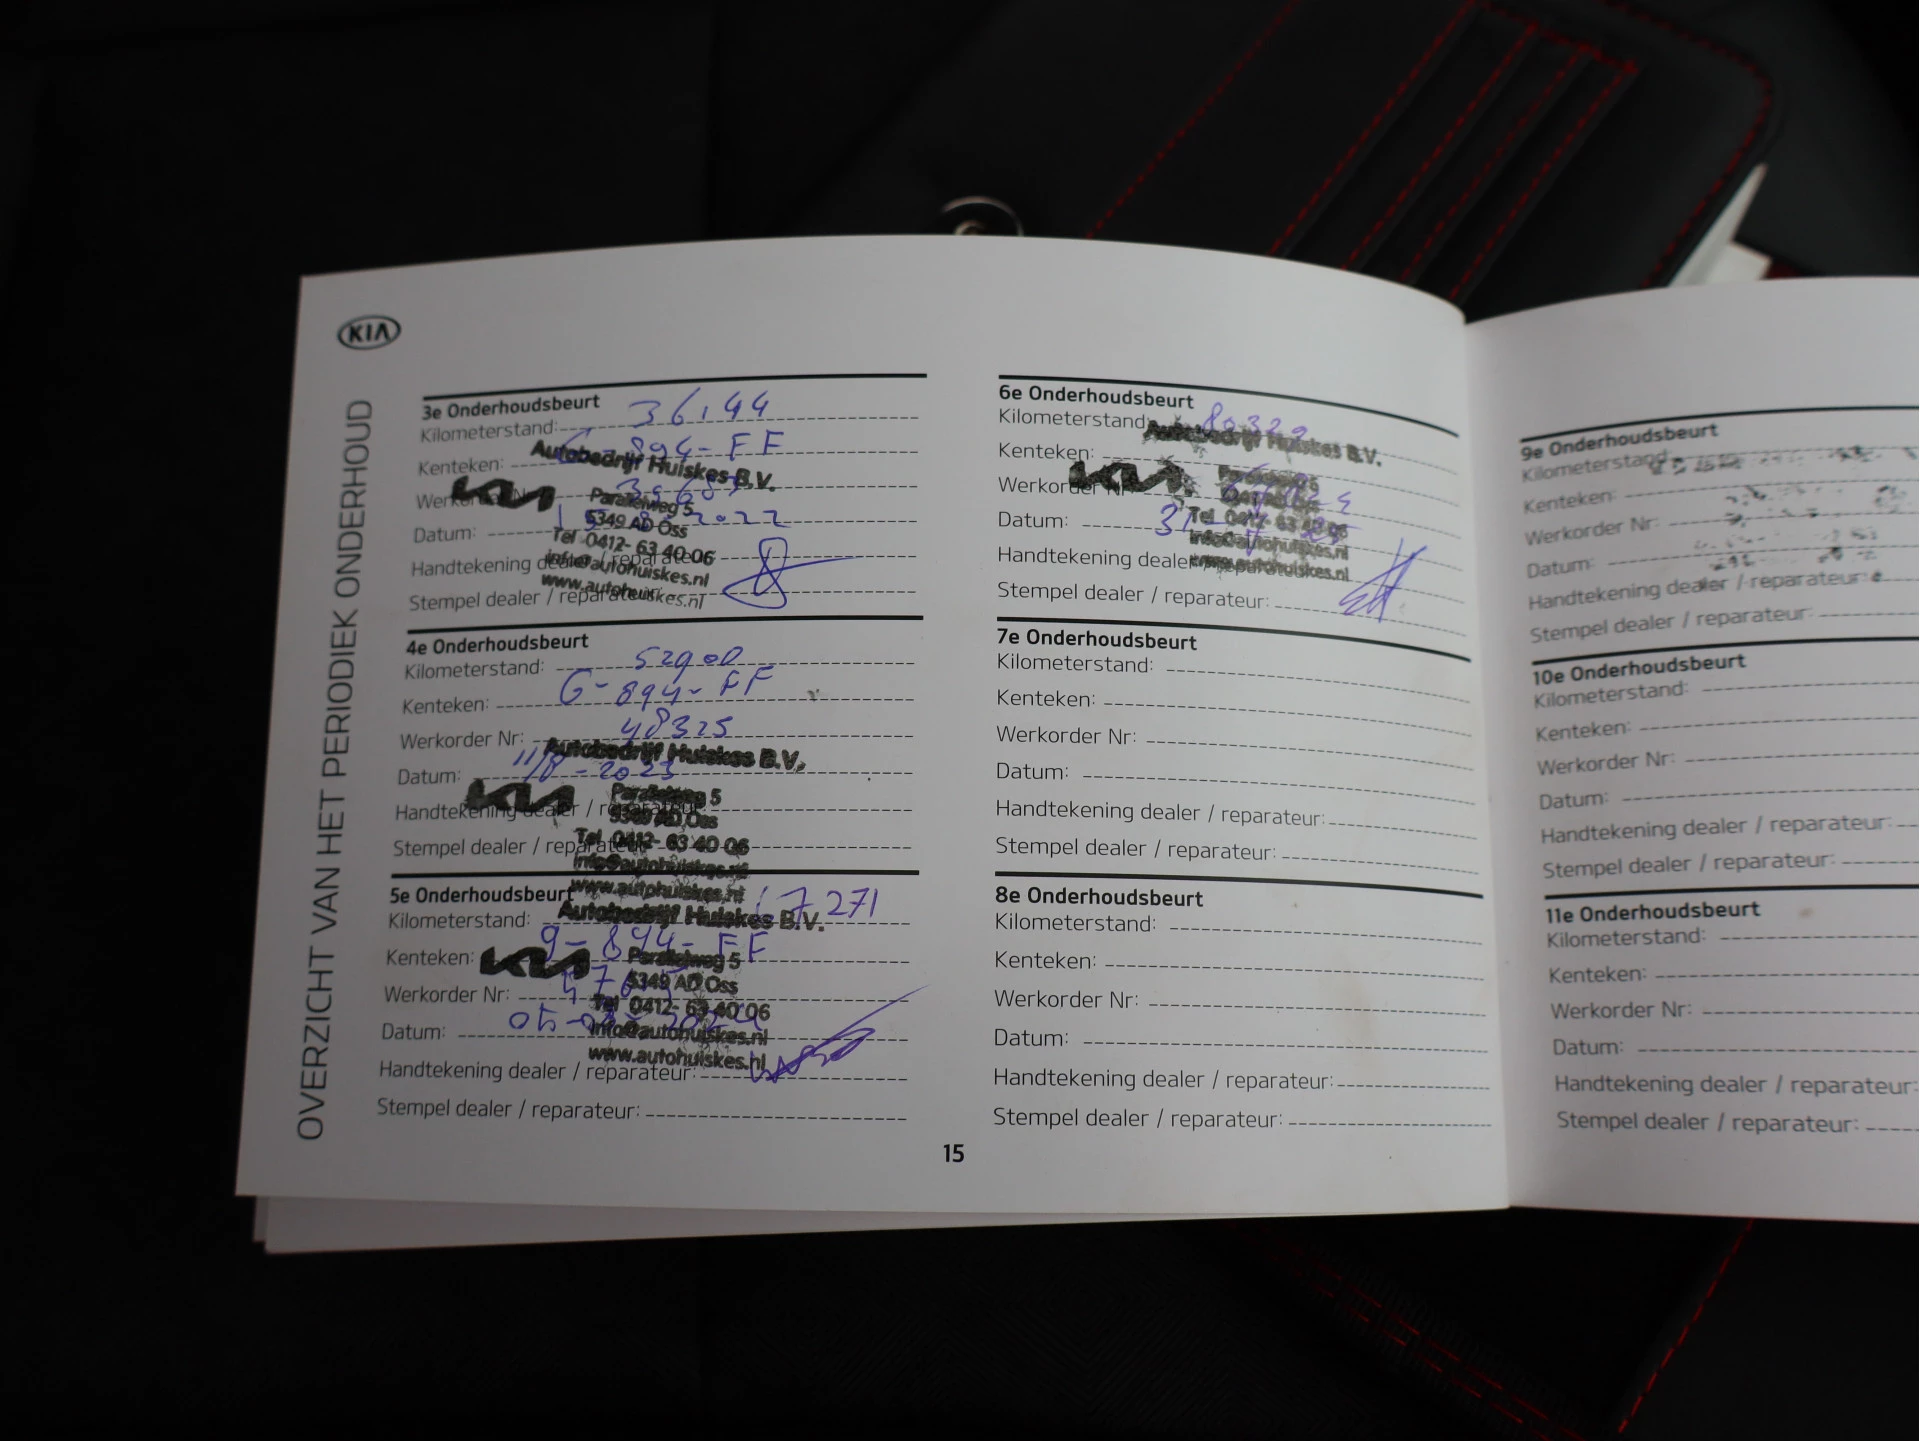 KIA
OVERZICHT VAN HET PERIODIEK ONDERHOUD
3e Onderhoudsbeurt
Kilometerstand: 36144
Kenteken: G-894-FF
Autobedrijf Huiskes B.V.
KIA
Parallelweg 5
Datum: 2022
5349 AD Oss
Tel 0412- 63 40 06
Handtekening dealer / reparateur:
info@autohuiskes.nl
Stempel dealer / reparateur:
www.autohuiskes.nl
4e Onderhoudsbeurt
Kilometerstand: 52900
Kenteken: G-894-FF
Werkorder Nr: 48325
Autobedrijf Huiskes B.V.
Datum: 11/8-2023
KIA
Parallelweg 5
Handtekening dealer / reparateur:
5349 AD Oss
Stempel dealer / reparateur:
Tel 0412- 63 40 06
info@autohuiskes.nl
www.autohuiskes.nl
5e Onderhoudsbeurt
Kilometerstand: 7271
Autobedrijf Huiskes B.V.
Kenteken: 9-894-FF
KIA
Parallelweg 5
5349 AD Oss
Werkorder Nr:
Tel 0412- 63 40 06
Datum:
info@autohuiskes.nl
www.autohuiskes.nl
Handtekening dealer / reparateur:
Stempel dealer / reparateur:
6e Onderhoudsbeurt
Kilometerstand: 80329
Autobedrijf Huiskes B.V.
Kenteken:
KIA
Parallelweg 5
Werkorder Nr:
Datum:
Tel 0412- 63 40 06
info@autohuiskes.nl
Handtekening dealer / reparateur:
www.autohuiskes.nl
Stempel dealer / reparateur:
7e Onderhoudsbeurt
Kilometerstand:
Kenteken:
Werkorder Nr:
Datum:
Handtekening dealer / reparateur:
Stempel dealer / reparateur:
8e Onderhoudsbeurt
Kilometerstand:
Kenteken:
Werkorder Nr:
Datum:
Handtekening dealer / reparateur:
Stempel dealer / reparateur:
15
9e Onderhoudsbeurt
Kilometerstand:
Kenteken:
Werkorder Nr:
Datum:
Handtekening dealer / reparateur:
Stempel dealer / reparateur:
10e Onderhoudsbeurt
Kilometerstand:
Kenteken:
Werkorder Nr:
Datum:
Handtekening dealer / reparateur:
Stempel dealer / reparateur:
11e Onderhoudsbeurt
Kilometerstand:
Kenteken:
Werkorder Nr:
Datum:
Handtekening dealer / reparateur:
Stempel dealer / reparateur: